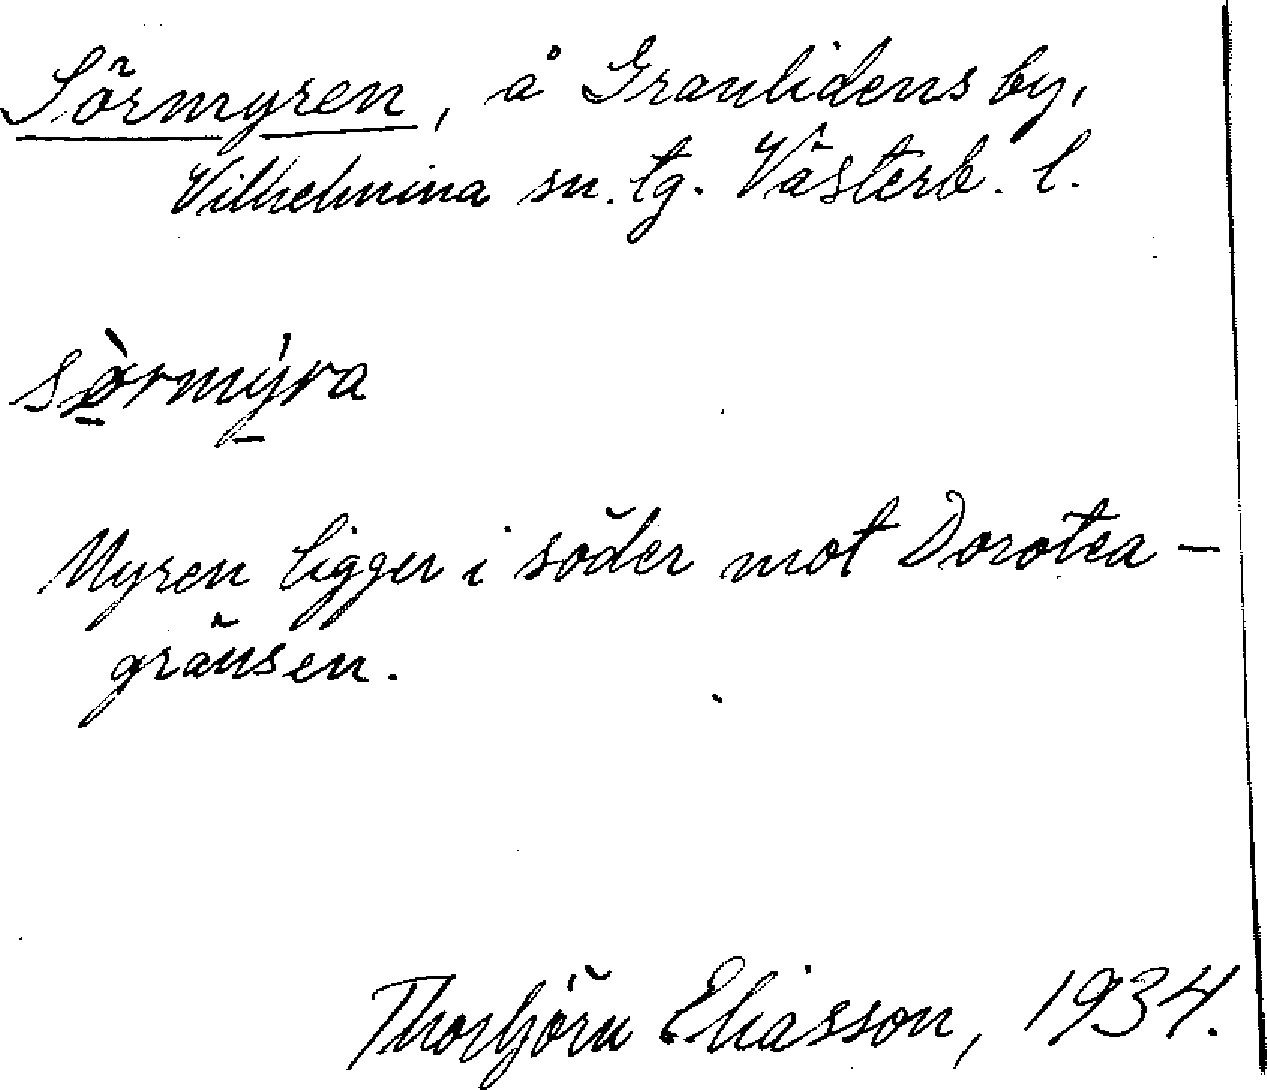 Sörmyren, å Granlidens by,
Vilhelmina sn. tg. Västerb. l.
sø̀rmýra
Myren ligger i söder mot Dorotea-
gränsen.
Thorbjörn Eliasson, 1934.